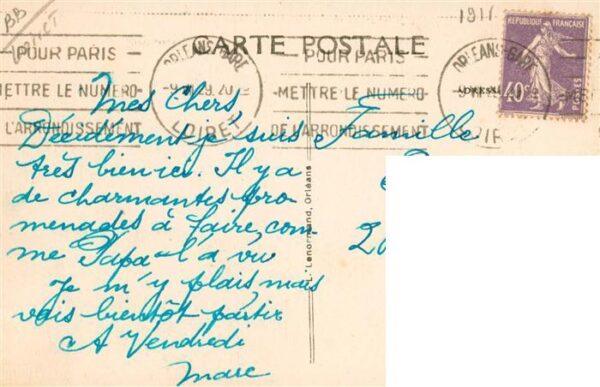 BB
1911
CARTE POSTALE
POUR PARIS
METTRE LE NUMERO
DE L'ARRONDISSEMENT
ORLEANS-GARE
LOIRET
POUR PARIS
METTRE LE NUMERO
DE L'ARRONDISSEMENT
ORLEANS-GARE
REPUBLIQUE FRANÇAISE
40c
POSTES
Mes Chers
Décidément je suis
très bien ici. Il y a
de charmantes pro
menades à faire, com
me Papa l'a vu
Je m'y plais mais
vais bientôt partir
A Vendredi
Marc
Famille
L. Lenormand, Orléans